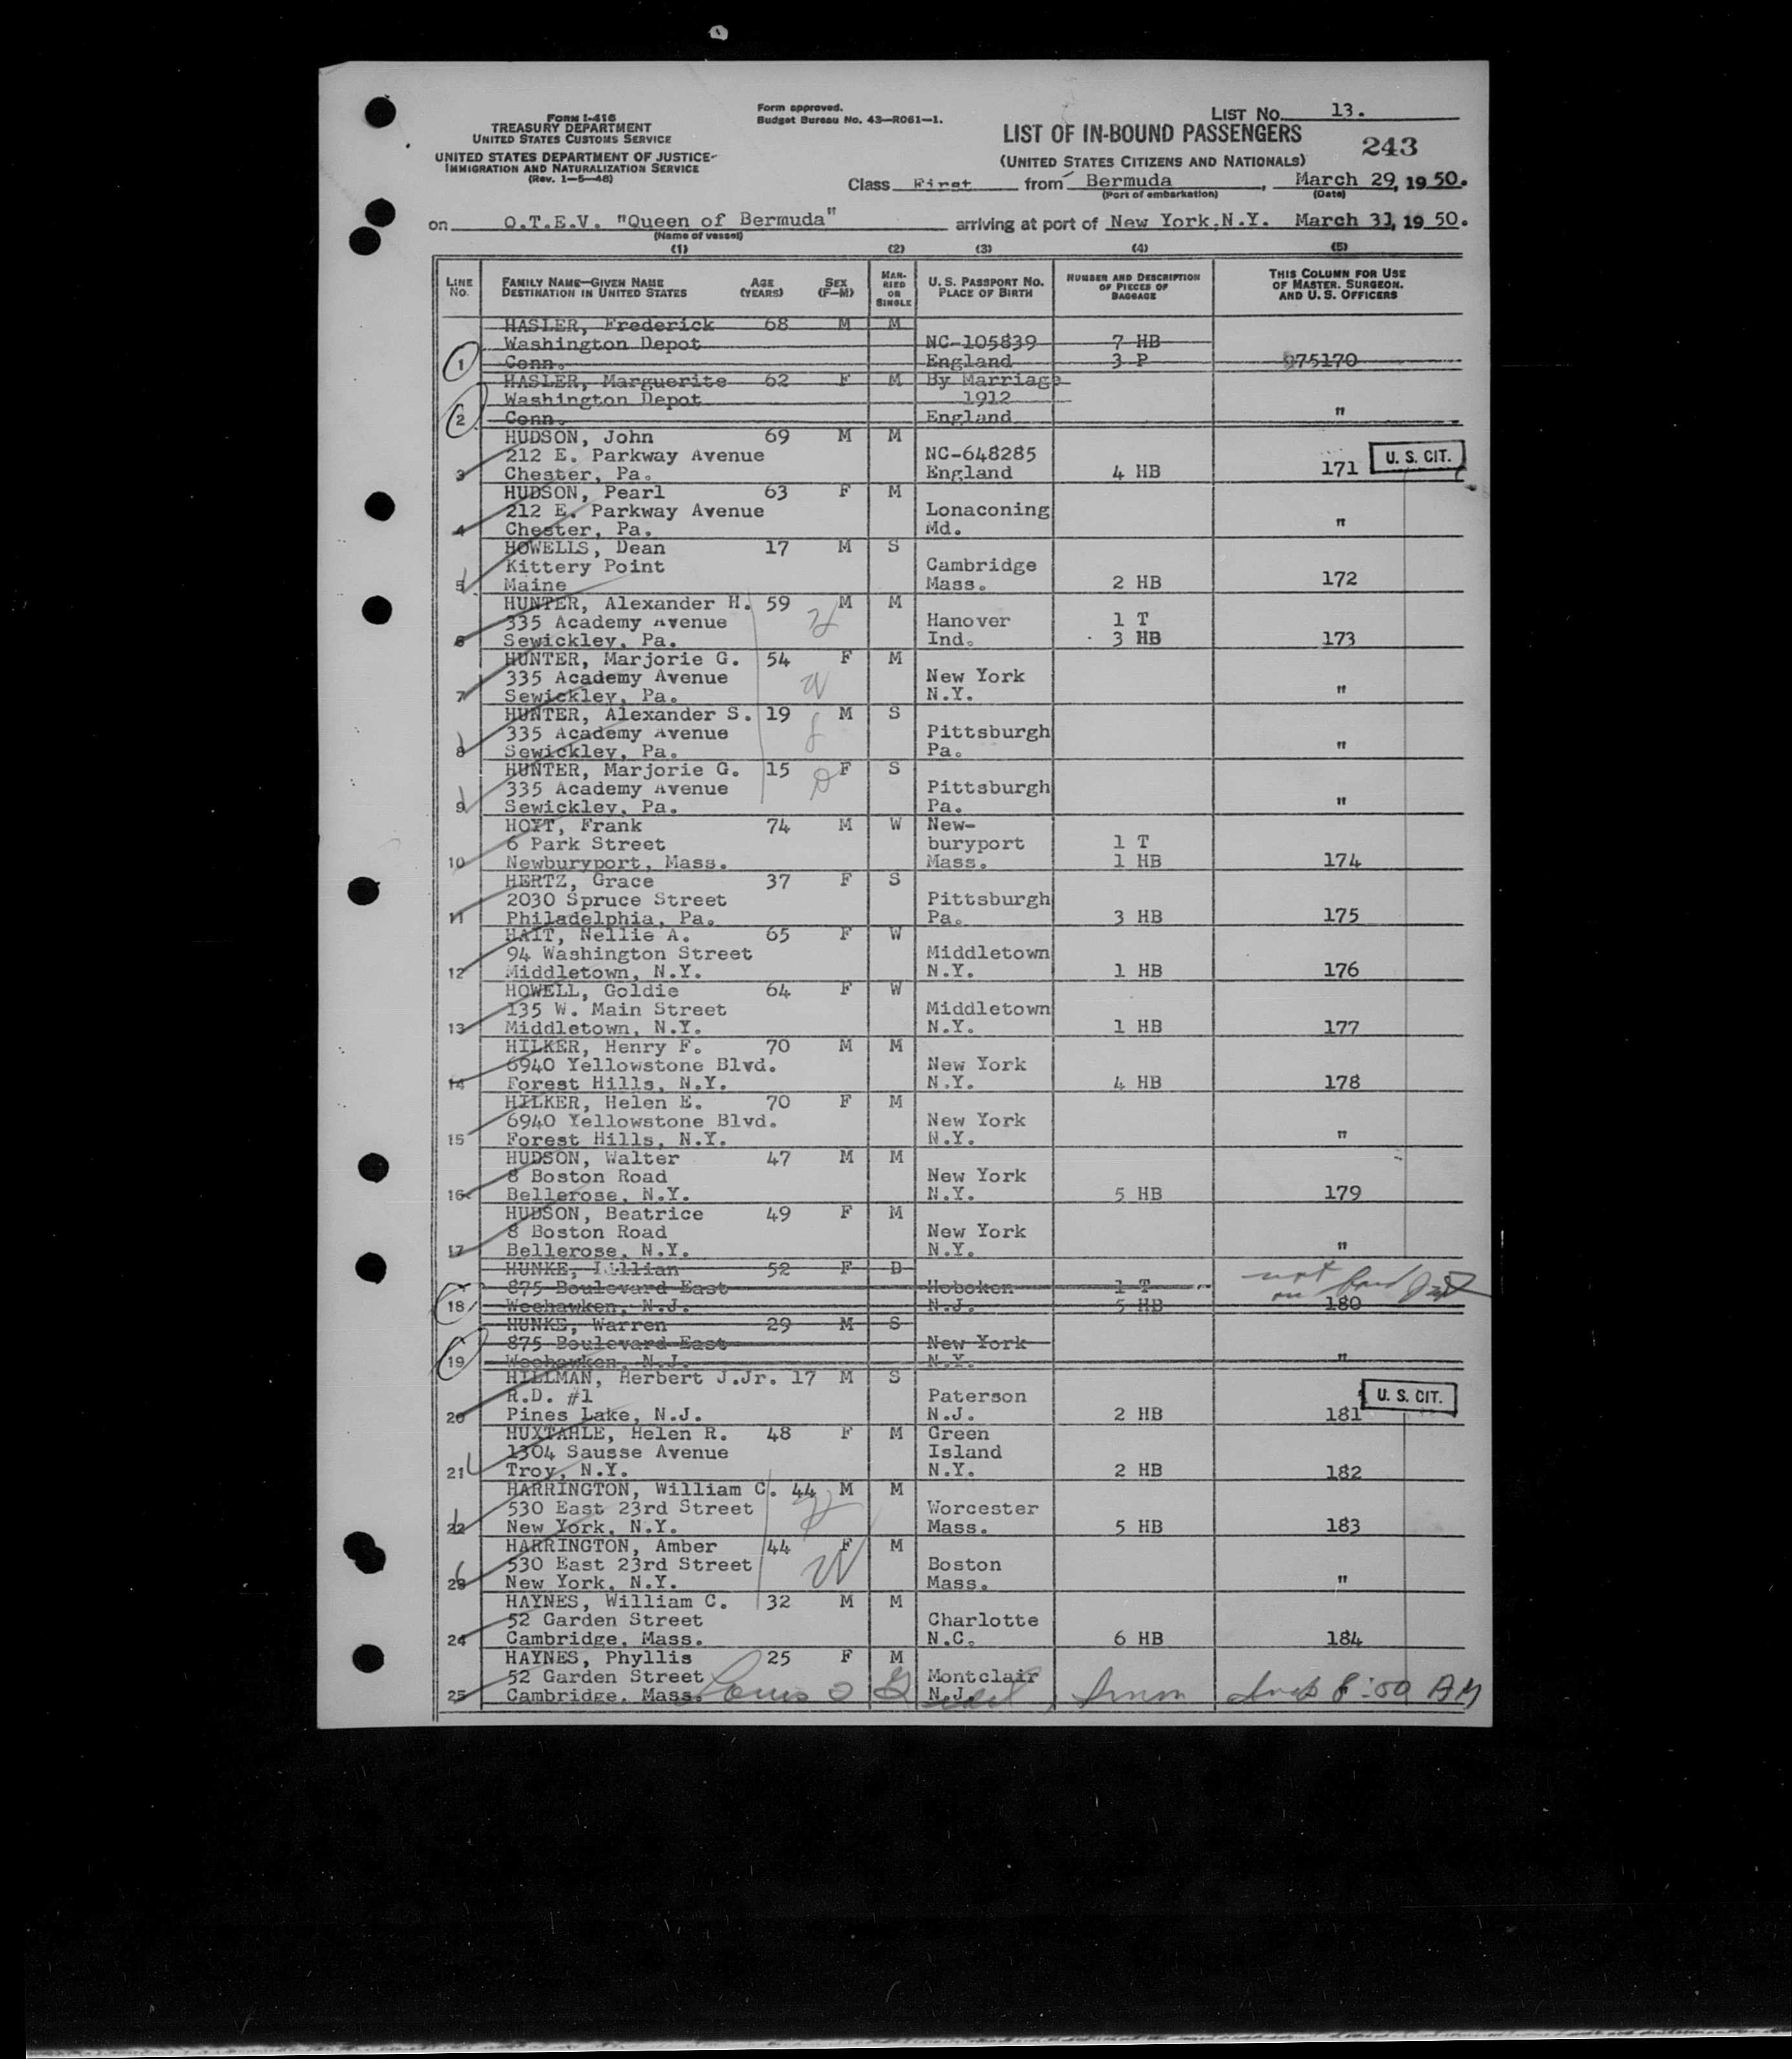 FORM I-416
TREASURY DEPARTMENT
UNITED STATES CUSTOMS SERVICE
UNITED STATES DEPARTMENT OF JUSTICE
IMMIGRATION AND NATURALIZATION SERVICE
(Rev. 1-5-48)
Form approved.
Budget Bureau No. 43-R061-1.
LIST No. 13.
LIST OF IN-BOUND PASSENGERS
243
(UNITED STATES CITIZENS AND NATIONALS)
Class First from Bermuda, March 29, 1950.
(Port of embarkation) (Date)
on O.T.E.V. "Queen of Bermuda" arriving at port of New York, N.Y. March 31, 1950.
(Name of vessel)
(1) (2) (3) (4) (5)
LINE NO. FAMILY NAME—GIVEN NAME DESTINATION IN UNITED STATES AGE (YEARS) SEX (F-M) MARRIED OR SINGLE U. S. PASSPORT NO. PLACE OF BIRTH NUMBER AND DESCRIPTION OF PIECES OF BAGGAGE THIS COLUMN FOR USE OF MASTER, SURGEON, AND U. S. OFFICERS
HASLER, Frederick 68 M M
Washington Depot NC-105839 7 HB
1 Conn. England 3 P 975170
HASLER, Marguerite 62 F M By Marriage
Washington Depot 1912
2 Conn. England "
HUDSON, John 69 M M
212 E. Parkway Avenue NC-648285
3 Chester, Pa. England 4 HB 171 U. S. CIT.
HUDSON, Pearl 63 F M
212 E. Parkway Avenue Lonaconing
4 Chester, Pa. Md. "
HOWELLS, Dean 17 M S
Kittery Point Cambridge
5 Maine Mass. 2 HB 172
HUNTER, Alexander H. 59 M M
335 Academy Avenue Hanover 1 T
6 Sewickley, Pa. Ind. 3 HB 173
HUNTER, Marjorie G. 54 F M
335 Academy Avenue W New York
7 Sewickley, Pa. N.Y. "
HUNTER, Alexander S. 19 M S
335 Academy Avenue Pittsburgh
8 Sewickley, Pa. Pa. "
HUNTER, Marjorie G. 15 F S
335 Academy Avenue D Pittsburgh
9 Sewickley, Pa. Pa. "
HOYT, Frank 74 M W New-
6 Park Street buryport 1 T
10 Newburyport, Mass. Mass. 1 HB 174
HERTZ, Grace 37 F S
2030 Spruce Street Pittsburgh
11 Philadelphia, Pa. Pa. 3 HB 175
HAIT, Nellie A. 65 F W
94 Washington Street Middletown
12 Middletown, N.Y. N.Y. 1 HB 176
HOWELL, Goldie 64 F W
135 W. Main Street Middletown
13 Middletown, N.Y. N.Y. 1 HB 177
HILKER, Henry F. 70 M M
6940 Yellowstone Blvd. New York
14 Forest Hills, N.Y. N.Y. 4 HB 178
HILKER, Helen E. 70 F M
6940 Yellowstone Blvd. New York
15 Forest Hills, N.Y. N.Y. "
HUDSON, Walter 47 M M
8 Boston Road New York
16 Bellerose, N.Y. N.Y. 5 HB 179
HUDSON, Beatrice 49 F M
8 Boston Road New York
17 Bellerose, N.Y. N.Y. "
HUNKE, Lillian 52 F D
875 Boulevard East Hoboken 1 T not on board
18 Weehawken, N.J. N.J. 5 HB 180
HUNKE, Warren 29 M S
875 Boulevard East New York
19 Weehawken, N.J. N.Y. "
HILLMAN, Herbert J.Jr. 17 M S
R.D. #1 Paterson U. S. CIT.
20 Pines Lake, N.J. N.J. 2 HB 181
HUXTAHLE, Helen R. 48 F M Green
1304 Sausse Avenue Island
21 Troy, N.Y. N.Y. 2 HB 182
HARRINGTON, William C. 44 M M
530 East 23rd Street Worcester
22 New York, N.Y. Mass. 5 HB 183
HARRINGTON, Amber 44 F M
530 East 23rd Street W Boston
23 New York, N.Y. Mass. "
HAYNES, William C. 32 M M
52 Garden Street Charlotte
24 Cambridge, Mass. N.C. 6 HB 184
HAYNES, Phyllis 25 F M
52 Garden Street Montclair
25 Cambridge, Mass. Louis N.J. 8:00 AM